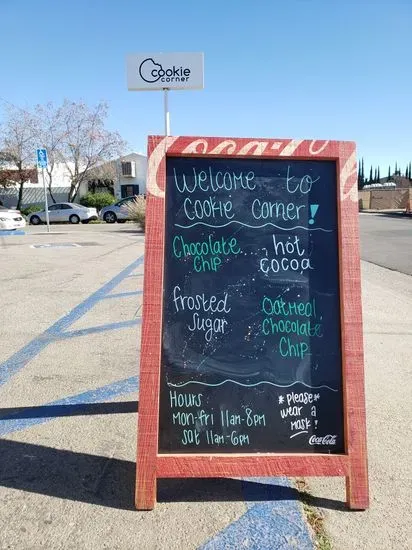 cookie
corner
Coca-Cola
Welcome to
Cookie Corner!
Chocolate
Chip
hot
cocoa
frosted
Sugar
Oatmeal
Chocolate
Chip
Hours
Mon-Fri 11am-8pm
Sat 11am-6pm
*please*
wear a
mask!
Coca-Cola